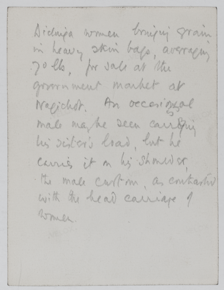 Didinga women bringing grain
in heavy skin bags, averaging
70 lb, for sale at the
government market at
Nagichot. An occasional
male may be seen carrying
his sister's load, but he
carries it on his shoulder,
the male custom, as contrasted
with the head carriage of
women